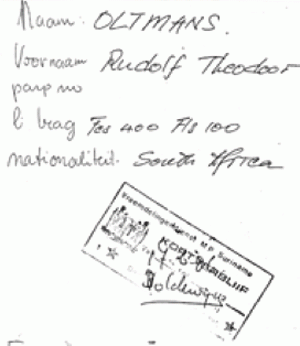 Naam: OLTMANS.
Voornaam Rudolf Theodoor
pasp no
b brag Fcs 400 Fls 100
nationaliteit. South Africa
Vreemdelingendienst M.P. Suriname
KORT VERBLIJF